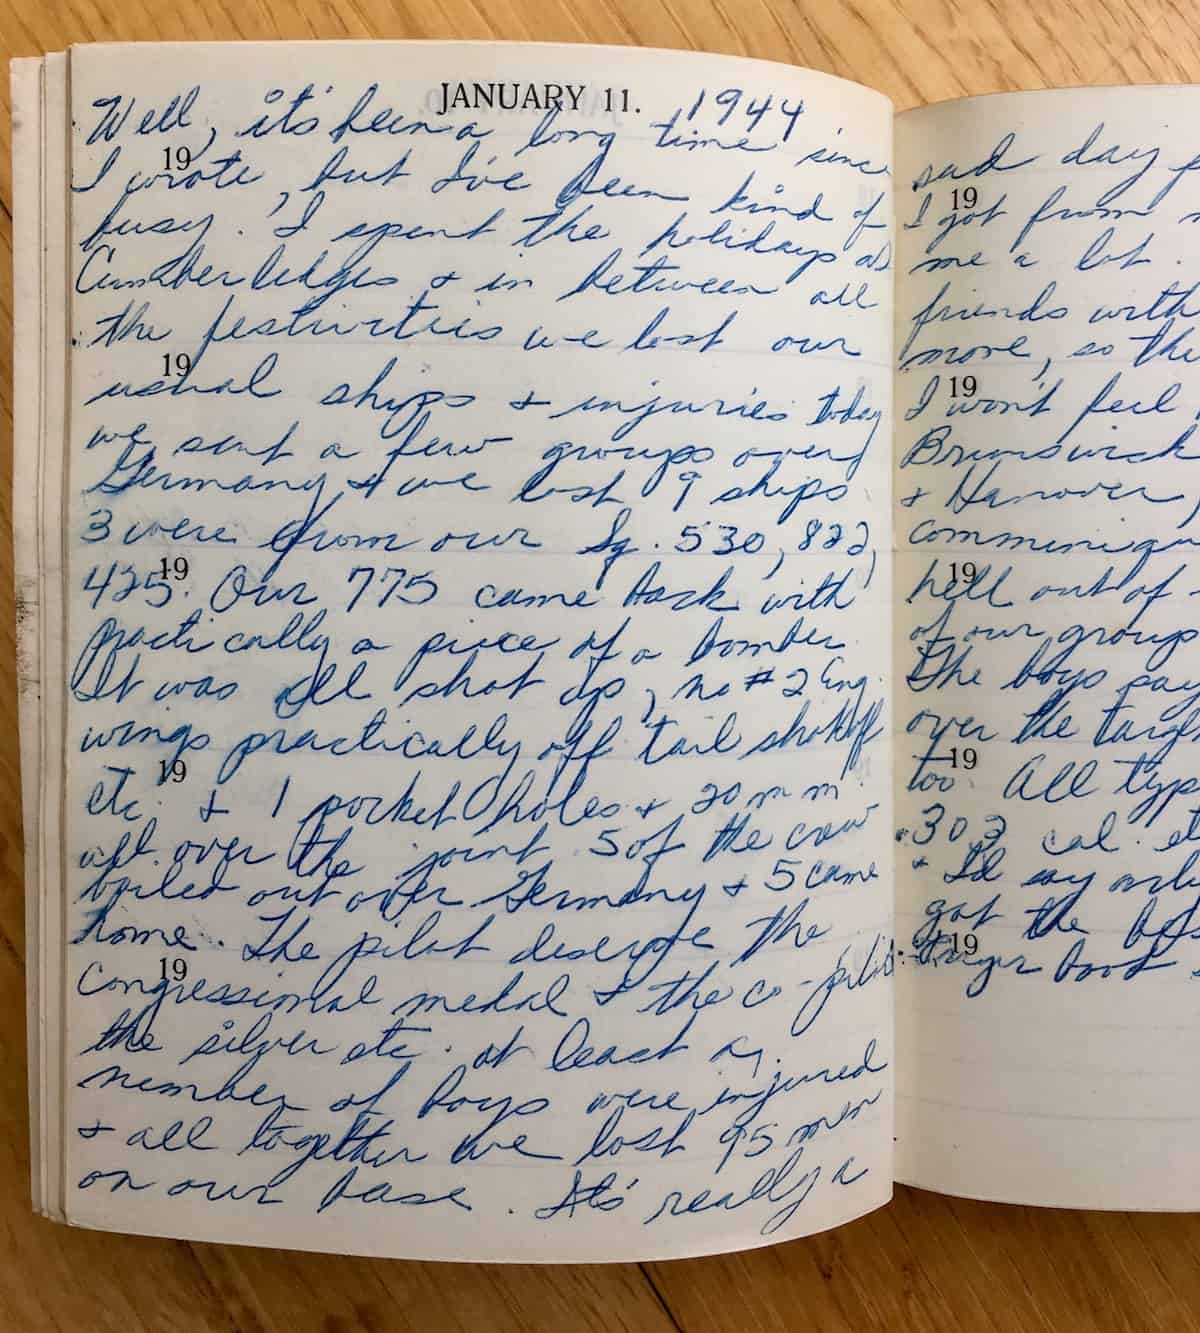 JANUARY 11. 1944
Well, it's been a long time since
19
I wrote, but I've been kind of
busy. I spent the holidays at
Cumberledges & in between all
the festivities we lost our
19
usual ships & injuries today
we sent a few groups over
Germany & we lost 9 ships
3 were from our Sq. 530, 822,
19
425. Our 775 came back with
practically a piece of a bomber.
It was all shot up, no #2 Eng.
wings practically off tail shot off
19
etc. & 1 rocket holes & 20 mm
all over the joint. 5 of the crew
bailed out over Germany & 5 came
home. The pilot deserve the
19
Congressional medal & the co-pilot
the silver etc. at least a
number of boys were injured
& all together we lost 95 men
on our base. It's really a
sad day
19
I got from
me a lot.
friends with
more, so the
19
I won't feel
Brunswick
& Hanover,
19
hell out of
of our groups
The boys say
over the targe
19
too. All typ
.303 cal. et
& I'd say
got the
19